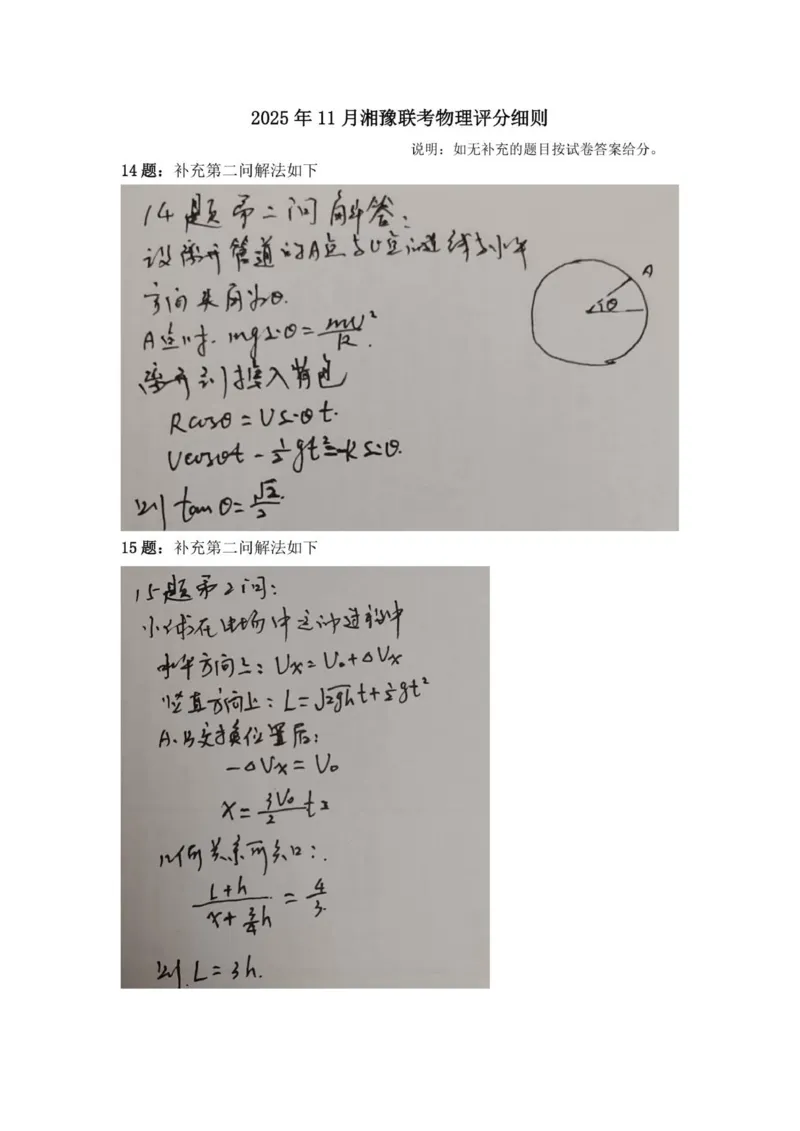 2025 年 11 月湘豫联考物理评分细则
说明：如无补充的题目按试卷答案给分。
14 题：补充第二问解法如下
14题第二问解答：
设离开管道的A点与O点的连线与水平
方向夹角为θ.
A
θ
A点时. mg sinθ = mv²/R.
离开到掉入背包
Rcosθ = V sinθ t.
Vcosθt - ½gt² = -R sinθ.
则 tanθ = √2/2.
15 题：补充第二问解法如下
15题第2问：
小球在电场中运动过程中
水平方向上：Vx = V₀ + ΔVx
竖直方向上：L = √2gh t + ½gt²
A、B交换位置后：
-ΔVx = V₀
x = 3V₀/2 t
几何关系可知：
L+h / x+¾h = 4/3.
则. L = 3h.